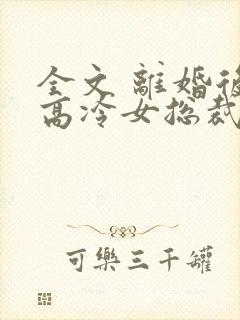 全文 離婚後
高冷女總裁
可樂三千罐